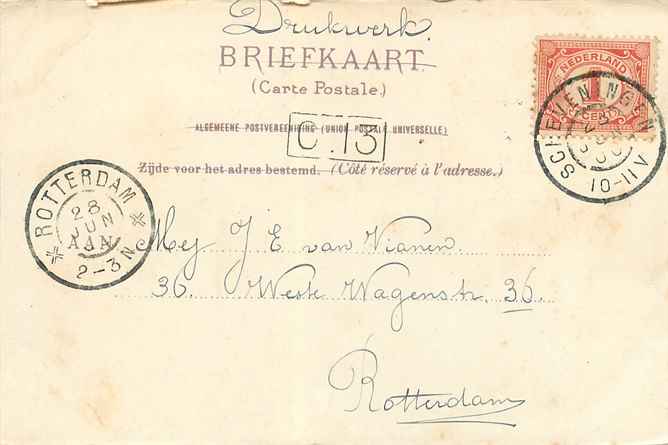 Drukwerk.
BRIEFKAART
(Carte Postale.)
ALGEMEENE POSTVEREENIGING (UNION POSTALE UNIVERSELLE)
C.13
Zijde voor het adres bestemd. (Côté réservé à l'adresse.)
NEDERLAND
1
CENT
SCHEVENINGEN
10-11V
ROTTERDAM
28
JUN
AAN
2-3N
Mej J E van Vianen.
36. Weste Wagenstr. 36.
Rotterdam